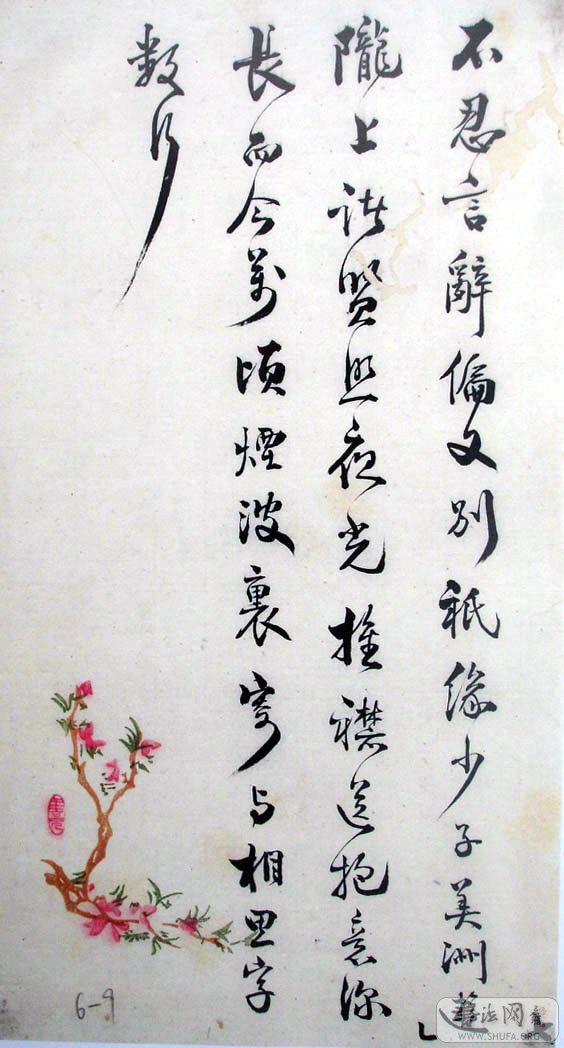 不忍言辭偏又別祇緣少子美洲
隴上諸賢照夜光推襟送抱意深
長而今萬頃煙波裏寄与相思字
数行
6-9
书法网
WWW.SHUFA.ORG